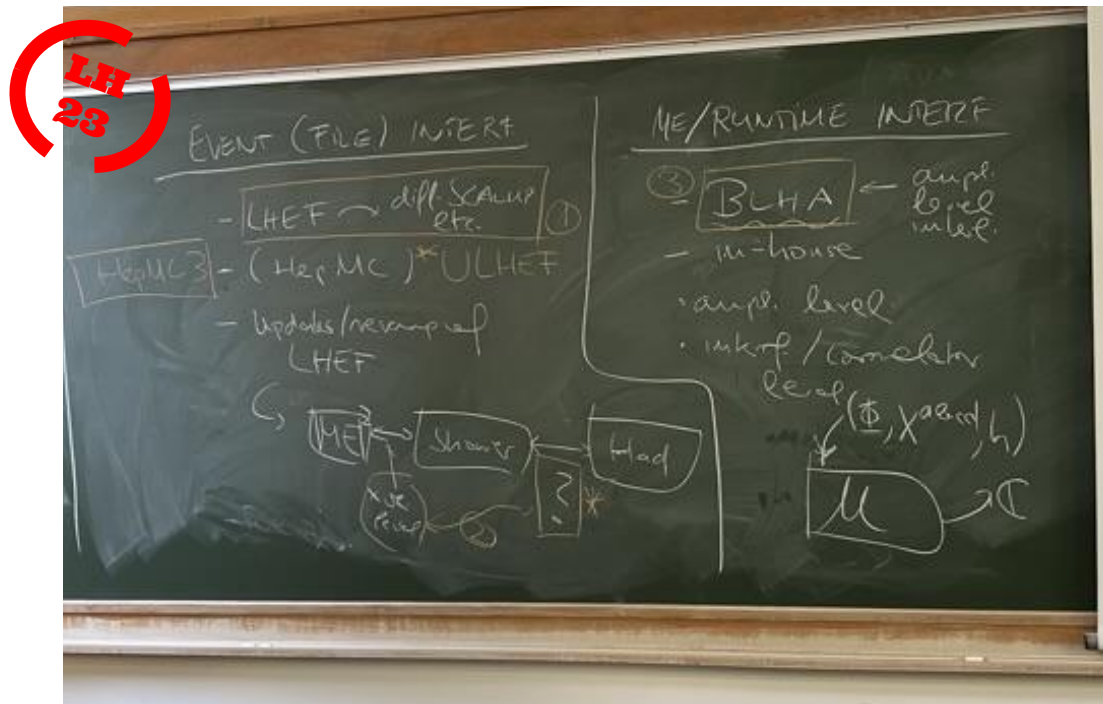 LH
23
EVENT (FILE) INTERF
- LHEF → diff. SCALUP
etc.
①
HepMC3 - (HepMC)* ULHEF
- Updates/revamp of
LHEF
ME
Shower
Had
?
*
②
ME/RUNTIME INTERF
③
- BLHA ← ampl.
level
interf.
- in-house
· ampl. level
· interf/correlator
level
M → ℂ